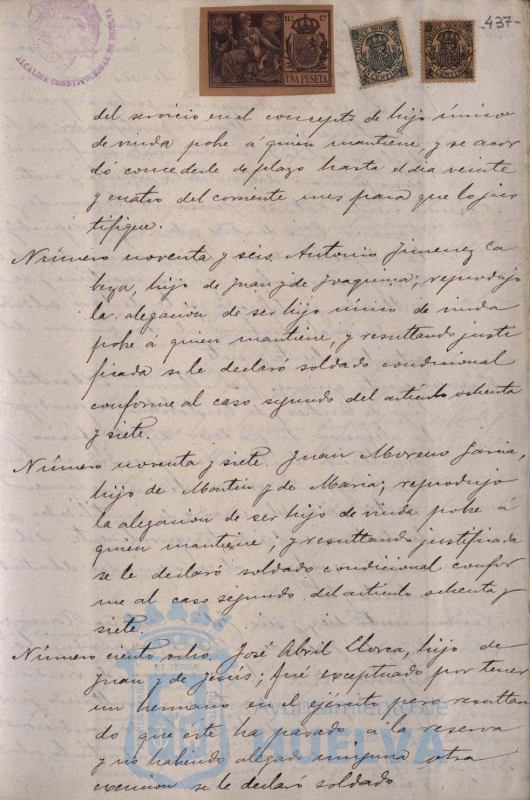 -437-
ALCALDIA CONSTITUCIONAL DE HUELVA
UNA PESETA
del servicio en el concepto de hijo único
de viuda pobre á quien mantiene, y se acor
dó concederle de plazo hasta el dia veinte
y cuatro del corriente mes para que lo jus
tifique.
Número noventa y seis. Antonio Jimenez Ca
beza, hijo de Juan y de Joaquina; reprodujo
la alegacion de ser hijo único de viuda
pobre á quien mantiene, y resultando justi
ficada se le declaró soldado condicional
conforme al caso segundo del artículo ochenta
y siete.
Número noventa y siete. Juan Moreno Garcia,
hijo de Martin y de Maria; reprodujo
la alegacion de ser hijo de viuda pobre á
quien mantiene; y resultando justificada
se le declaró soldado condicional confor
me al caso segundo del artículo ochenta y
siete.
Número ciento ocho. José Abril Llorca, hijo de
Juan y de Jesús; fué exceptuado por tener
un hermano en el ejército pero resultan
do que este ha pasado á la reserva
y no habiendo alegado ninguna otra
exencion se le declaró soldado
Ayuntamiento de
HUELVA